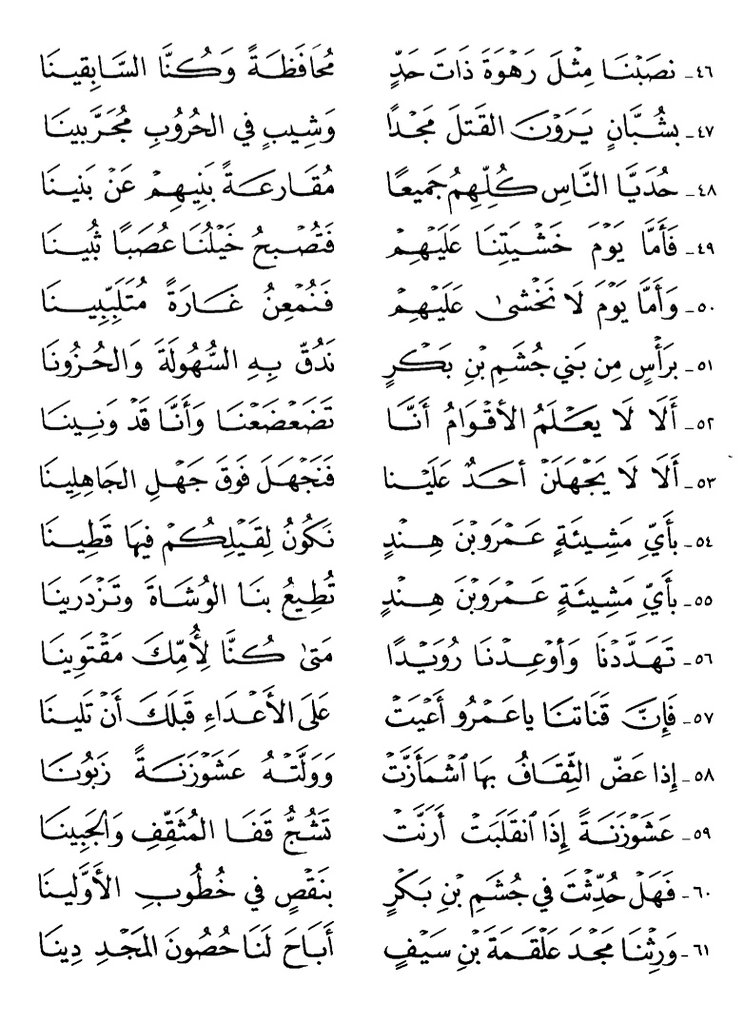 ٤٦ـ نَصَبْنَا مِثْلَ رَهْوَةَ ذَاتَ حَدٍّ مُحَافَظَةً وَكُنَّا السَّابِقِينَا
٤٧ـ بِشُبَّانٍ يَرَوْنَ القَتْلَ مَجْدًا وَشِيبٍ فِي الحُرُوبِ مُجَرَّبِينَا
٤٨ـ حُدَيَّا النَّاسِ كُلِّهِمُ جَمِيعًا مُقَارَعَةً بَنِيهِمْ عَنْ بَنِينَا
٤٩ـ فَأَمَّا يَوْمَ خَشْيَتِنَا عَلَيْهِمْ فَتُصْبِحُ خَيْلُنَا عُصَبًا ثُبِينَا
٥٠ـ وَأَمَّا يَوْمَ لَا نَخْشَى عَلَيْهِمْ فَنُمْعِنُ غَارَةً مُتَلَبِّبِينَا
٥١ـ بِرَأْسٍ مِن بَنِي جُشَمِ بْنِ بَكْرٍ نَدُقُّ بِهِ السُّهُولَةَ وَالحُزُونَا
٥٢ـ أَلَا لَا يَعْلَمُ الأَقْوَامُ أَنَّا تَضَعْضَعْنَا وَأَنَّا قَدْ وَنِينَا
٥٣ـ أَلَا لَا يَجْهَلَنْ أَحَدٌ عَلَيْنَا فَنَجْهَلَ فَوْقَ جَهْلِ الجَاهِلِينَا
٥٤ـ بِأَيِّ مَشِيئَةٍ عَمْرَو بْنَ هِنْدٍ نَكُونُ لِقَيْلِكُمْ فِيهَا قَطِينَا
٥٥ـ بِأَيِّ مَشِيئَةٍ عَمْرَو بْنَ هِنْدٍ تُطِيعُ بِنَا الوُشَاةَ وَتَزْدَرِينَا
٥٦ـ تَهَدَّدْنَا وَأَوْعِدْنَا رُوَيْدًا مَتَى كُنَّا لِأُمِّكَ مَقْتَوِينَا
٥٧ـ فَإِنَّ قَنَاتَنَا يَا عَمْرُو أَعْيَتْ عَلَى الأَعْدَاءِ قَبْلَكَ أَنْ تَلِينَا
٥٨ـ إِذَا عَضَّ الثِّقَافُ بِهَا ٱشْمَأَزَّتْ وَوَلَّتْهُ عَشَوْزَنَةً زَبُونَا
٥٩ـ عَشَوْزَنَةً إِذَا ٱنقَلَبَتْ أَرَنَّتْ تَشُجُّ قَفَا المُثَقِّفِ وَالجَبِينَا
٦٠ـ فَهَلْ حُدِّثْتَ فِي جُشَمِ بْنِ بَكْرٍ بِنَقْصٍ فِي خُطُوبِ الأَوَّلِينَا
٦١ـ وَرِثْنَا مَجْدَ عَلْقَمَةَ بْنِ سَيْفٍ أَبَاحَ لَنَا حُصُونَ المَجْدِ دِينَا